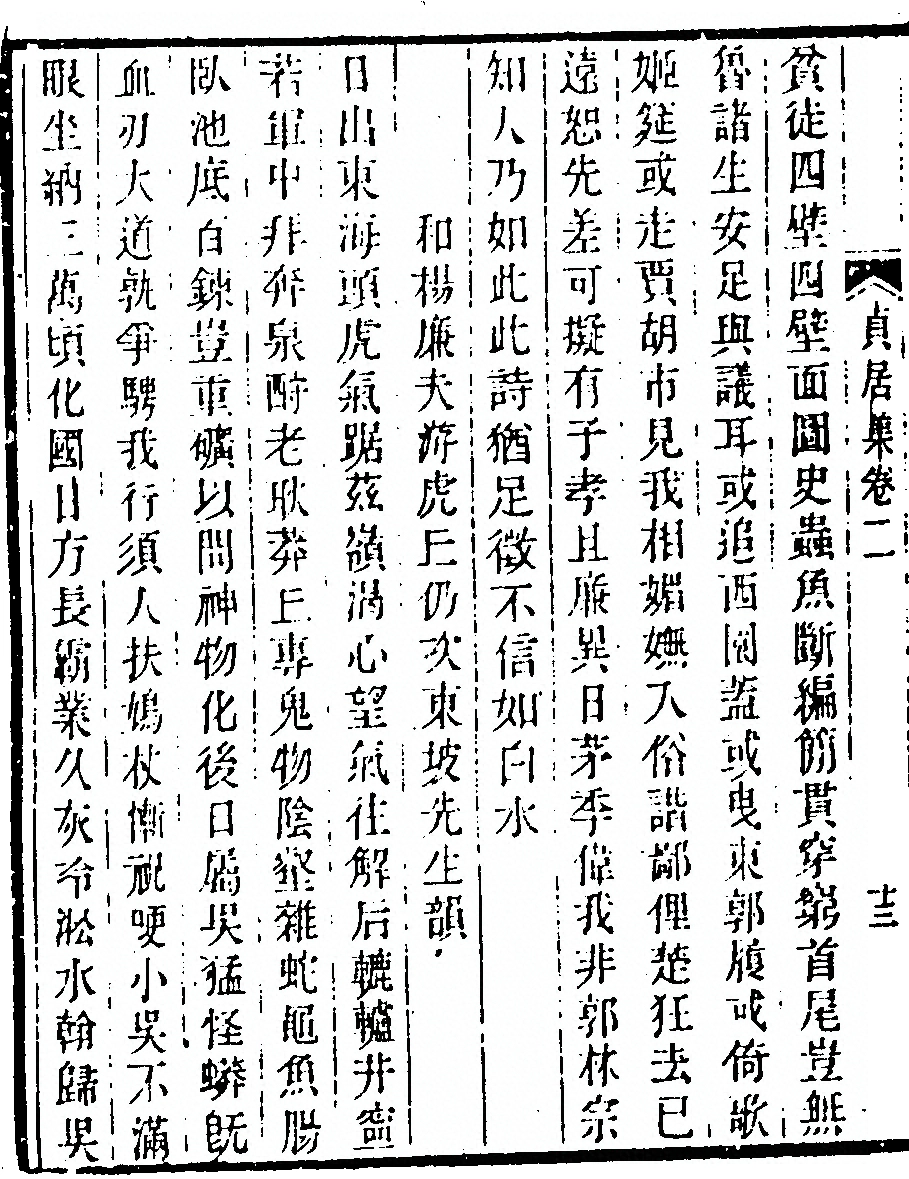 貞居集卷二
十三
貧徒四壁四壁面圖史蟲魚斷編簡貫穿窮首尾豈無
魯諸生安足與議耳或追西園蓋或曳東郭履或倚歌
姬筵或走賈胡市見我相媚嫵入俗諧鄙俚楚狂去已
遠恕先差可擬有子孝且廉異日茅季偉我非郭林宗
知人乃如此此詩猶足徵不信如白水
和楊廉夫游虎丘仍次東坡先生韻
日出東海頭虎氣踞茲嶺渦心望氣往解后轆轤井寧
若軍中非奔泉酹老耿莽丘專鬼物陰壑雜蛇黽魚腸
臥池底百鍊豈重礦以問神物化後日屬吳猛怪蟒既
血刃大道孰爭騁我行須人扶鳩杖慚祝哽小吳不滿
眼坐納三萬頃化國日方長霸業久灰冷淞水翰歸吳